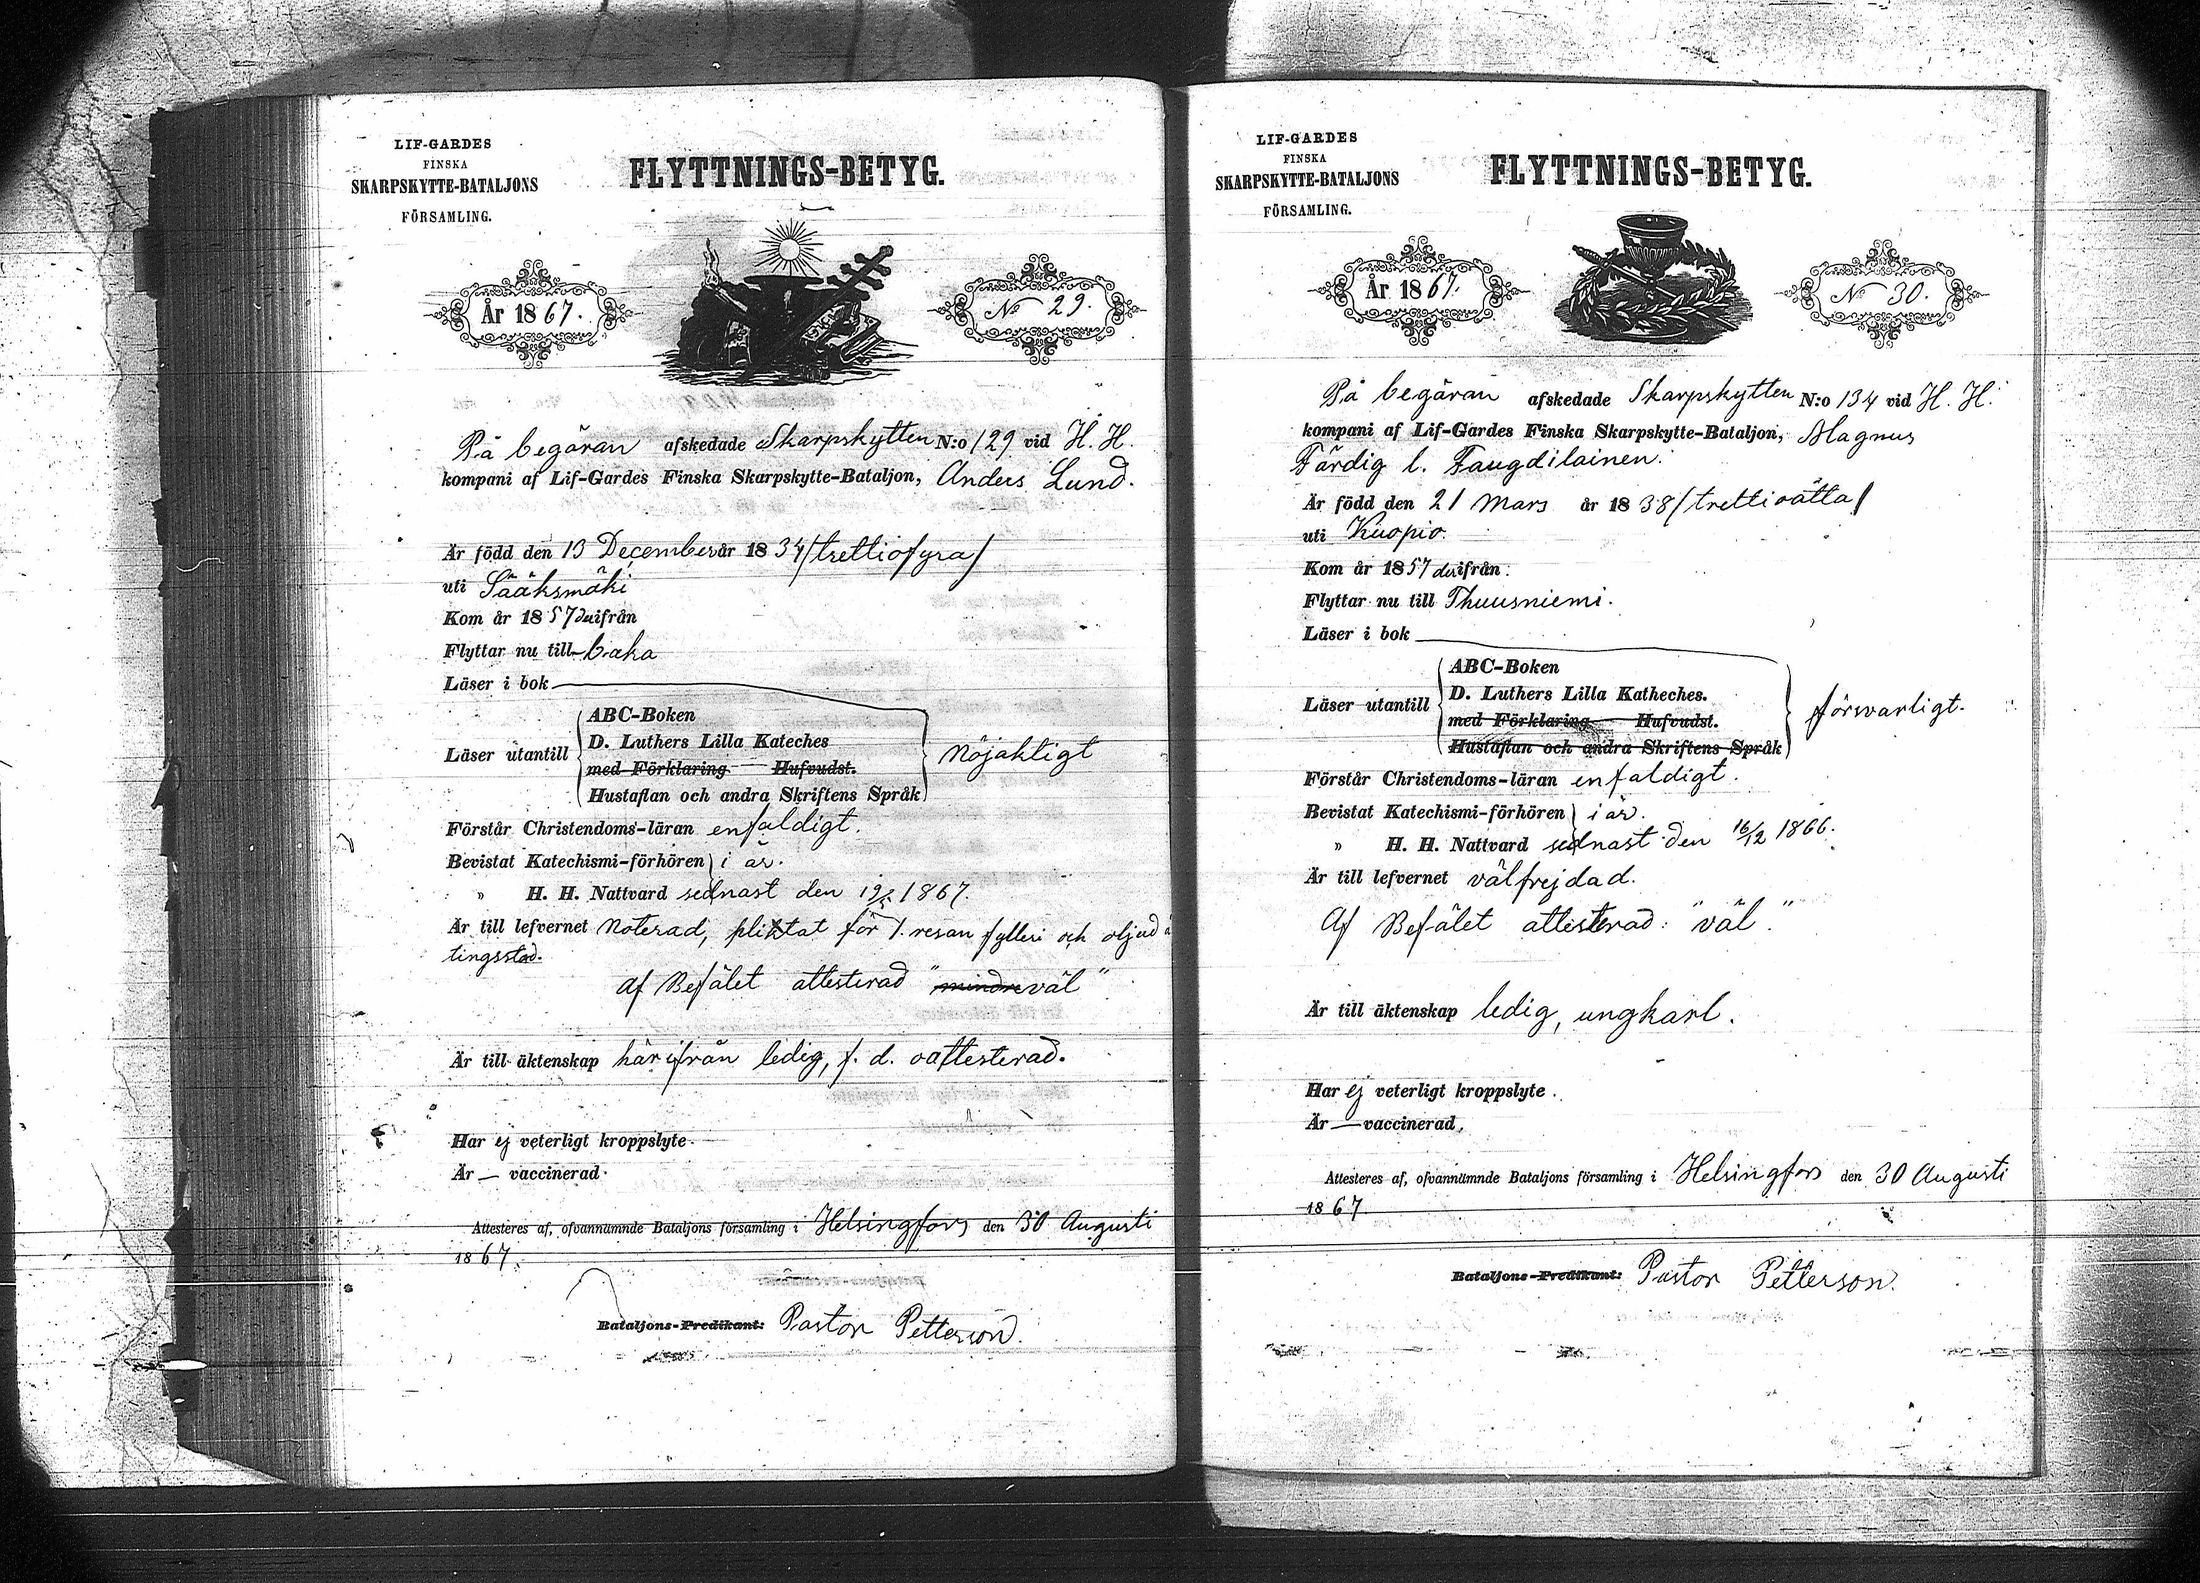 LIF-GARDES
FINSKA
SKARPSKYTTE-BATALJONS
FÖRSAMLING.
FLYTTNINGS-BETYG.
År 1867.
No 29.
På begäran afskedade Skarpskytten N:o 129 vid H. H.
kompani af Lif-Gardes Finska Skarpskytte-Bataljon, Anders Lund.
Är född den 13 December år 1834 / trettiofyra /
uti Sääksmäki
Kom år 1857 därifrån
Flyttar nu till baka
Läser i bok
Läser utantill
ABC-Boken
D. Luthers Lilla Kateches
med Förklaring Hufvudst.
Hustaflan och andra Skriftens Språk
Nöjaktigt
Förstår Christendoms-läran enfaldigt.
Bevistat Katechismi-förhören i år.
" H. H. Nattvard sednast den 1867.
Är till lefvernet Noterad, pliktat för 1. resan fylleri och oljud å
tingsstad.
af Befälet attesterad "mindre väl"
Är till äktenskap härifrån ledig, f. d. oattesterad.
Har ej veterligt kroppslyte.
Är — vaccinerad.
Attesteres af, ofvannämnde Bataljons församling i Helsingfors den 30 Augusti
1867.
Bataljons-Predikant: Pastor Petterson.
LIF-GARDES
FINSKA
SKARPSKYTTE-BATALJONS
FÖRSAMLING.
FLYTTNINGS-BETYG.
År 1867.
No 30.
På begäran afskedade Skarpskytten N:o 134 vid H. H.
kompani af Lif-Gardes Finska Skarpskytte-Bataljon, Magnus
Färdig l.
Är född den 21 Mars år 1838 / trettioåtta /
uti Kuopio.
Kom år 1857 därifrån.
Flyttar nu till Thuusniemi.
Läser i bok
Läser utantill
ABC-Boken
D. Luthers Lilla Katheches.
med Förklaring Hufvudst.
Hustaflan och andra Skriftens Språk
försvarligt.
Förstår Christendoms-läran enfaldigt.
Bevistat Katechismi-förhören i år.
" H. H. Nattvard sednast den 16/12 1866.
Är till lefvernet välfrejdad.
Af Befälet attesterad: "väl."
Är till äktenskap ledig, ungkarl.
Har ej veterligt kroppslyte.
Är — vaccinerad.
Attesteres af, ofvannämnde Bataljons församling i Helsingfors den 30 Augusti
1867
Bataljons-Predikant: Pastor Petterson.